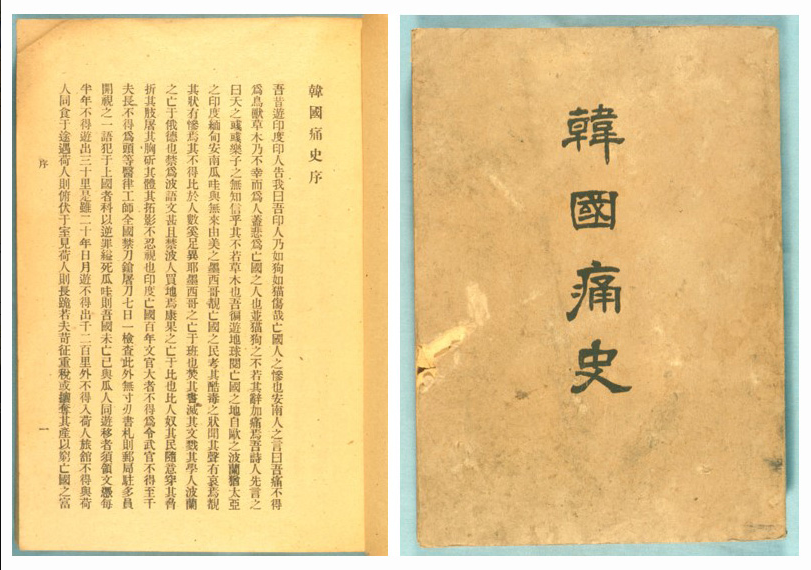 韓國痛史
韓國痛史序
吾昔遊印度印人告我曰吾印人乃如狗如猫傷哉亡國人之慘也安南人之言曰吾痛不得
爲鳥獸草木乃不幸而爲人蓋悲爲亡國之人也並猫狗之不若其辭加痛焉吾詩人先言之
曰夭之樂子之無知信乎其不若草木也吾徧遊地球閱亡國之地自歐之波蘭猶太亞
之印度緬甸安南瓜哇與無來由美之墨西哥覩亡國之民考其酷毒之狀聞其聲有哀焉覩
其狀有慘焉其不得比於人數奚足異耶墨西哥之亡于班也焚其書滅其文戮其學人波蘭
之亡于俄德也禁爲波語文甚且禁波人買地焉康果之亡于比也比人奴其民隨意穿其脅
折其肢屠其胸斫其體其拓影不忍視也印度亡國百年文官大者不得爲令武官不得至千
夫長不得爲頭等醫律工師全國禁刀鎗屠刀七日一檢查此外無寸刃書札則郵局駐多員
開視之一語犯于上國者科以逆罪縊死瓜哇則吾國未亡已與瓜人同遊移者須領文憑每
半年不得遊出三十里是雖二十年日月遊不得出千二百里外不得入荷人旅館不得與荷
人同食于途遇荷人則俯伏于室見荷人則長跪若夫苛征重稅或攘奪其產以窮亡國之富
序
一